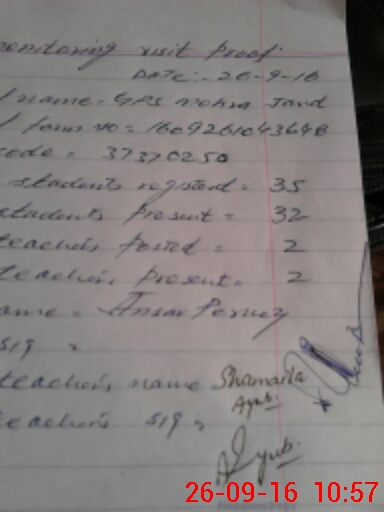 monitoring visit proof.
DATE:- 26-9-16
name = GPS Mohra Jand
form no = 1609261043648
code = 37370250
students registerd = 35
students Present = 32
teachers Posted = 2
teachers present = 2
ame = Ansar Pervez
sig =
teachers name Shamaila
Ayub.
teachers sig =
Ayub.
26-09-16 10:57